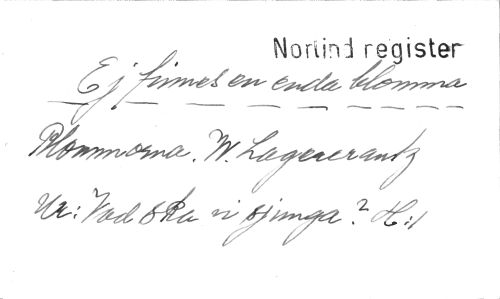 Norlind register
Ej finnes en enda blomma
Blommorna. W. Lagercrantz
Ur: Vad ska vi sjunga? H:1